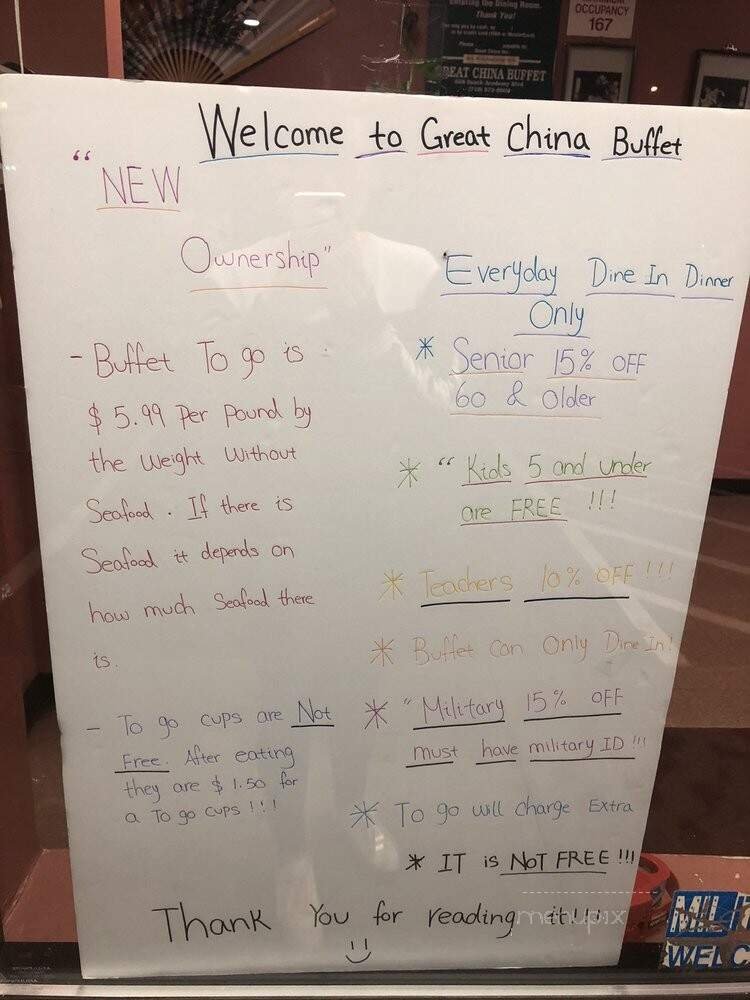 Entering the Dining Room.
Thank You!
OCCUPANCY
167
GREAT CHINA BUFFET
Welcome to Great China Buffet
“NEW
Ownership”
- Buffet To go is
$5.99 Per Pound by
the Weight Without
Seafood. If there is
Seafood it depends on
how much Seafood there
is.
- To go cups are Not
Free. After eating
they are $1.50 for
a To go cups !!!
Everyday Dine In Dinner
Only
* Senior 15% OFF
60 & Older
* “Kids 5 and under
are FREE !!!
* Teachers 10% OFF !!!
* Buffet can Only Dine In!
* “Military 15% OFF
must have military ID !!!
* To go will charge Extra
* IT is NOT FREE !!!
Thank You for reading it!!!
menupix